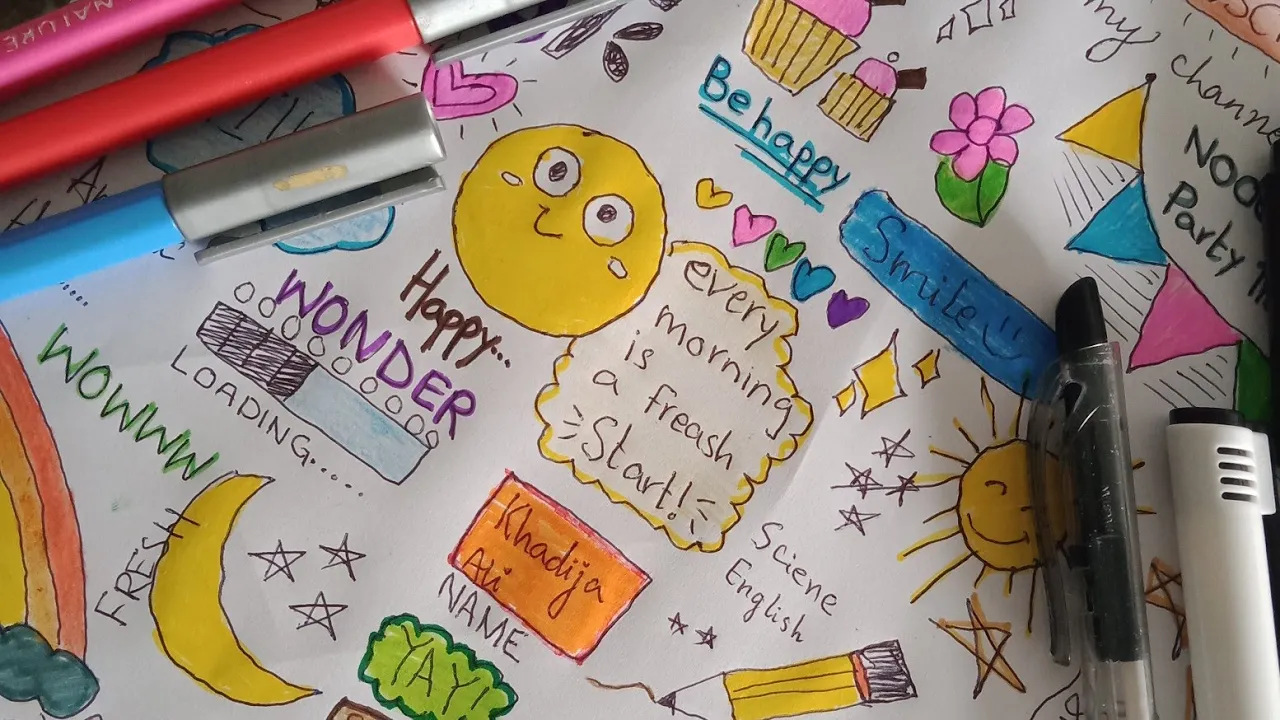 my
channe
Be happy
NOO
Party
Smile
every
morning
is
a Freash
Start!
Happy...
WONDER
LOADING....
WOWWW
FRESH
Khadija
Ali
NAME
Sciene
English
YAY!